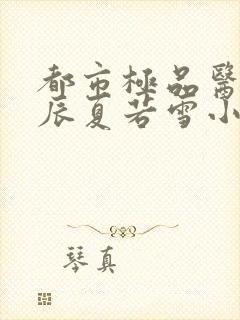 都市極品醫
辰夏若雪小
琴真